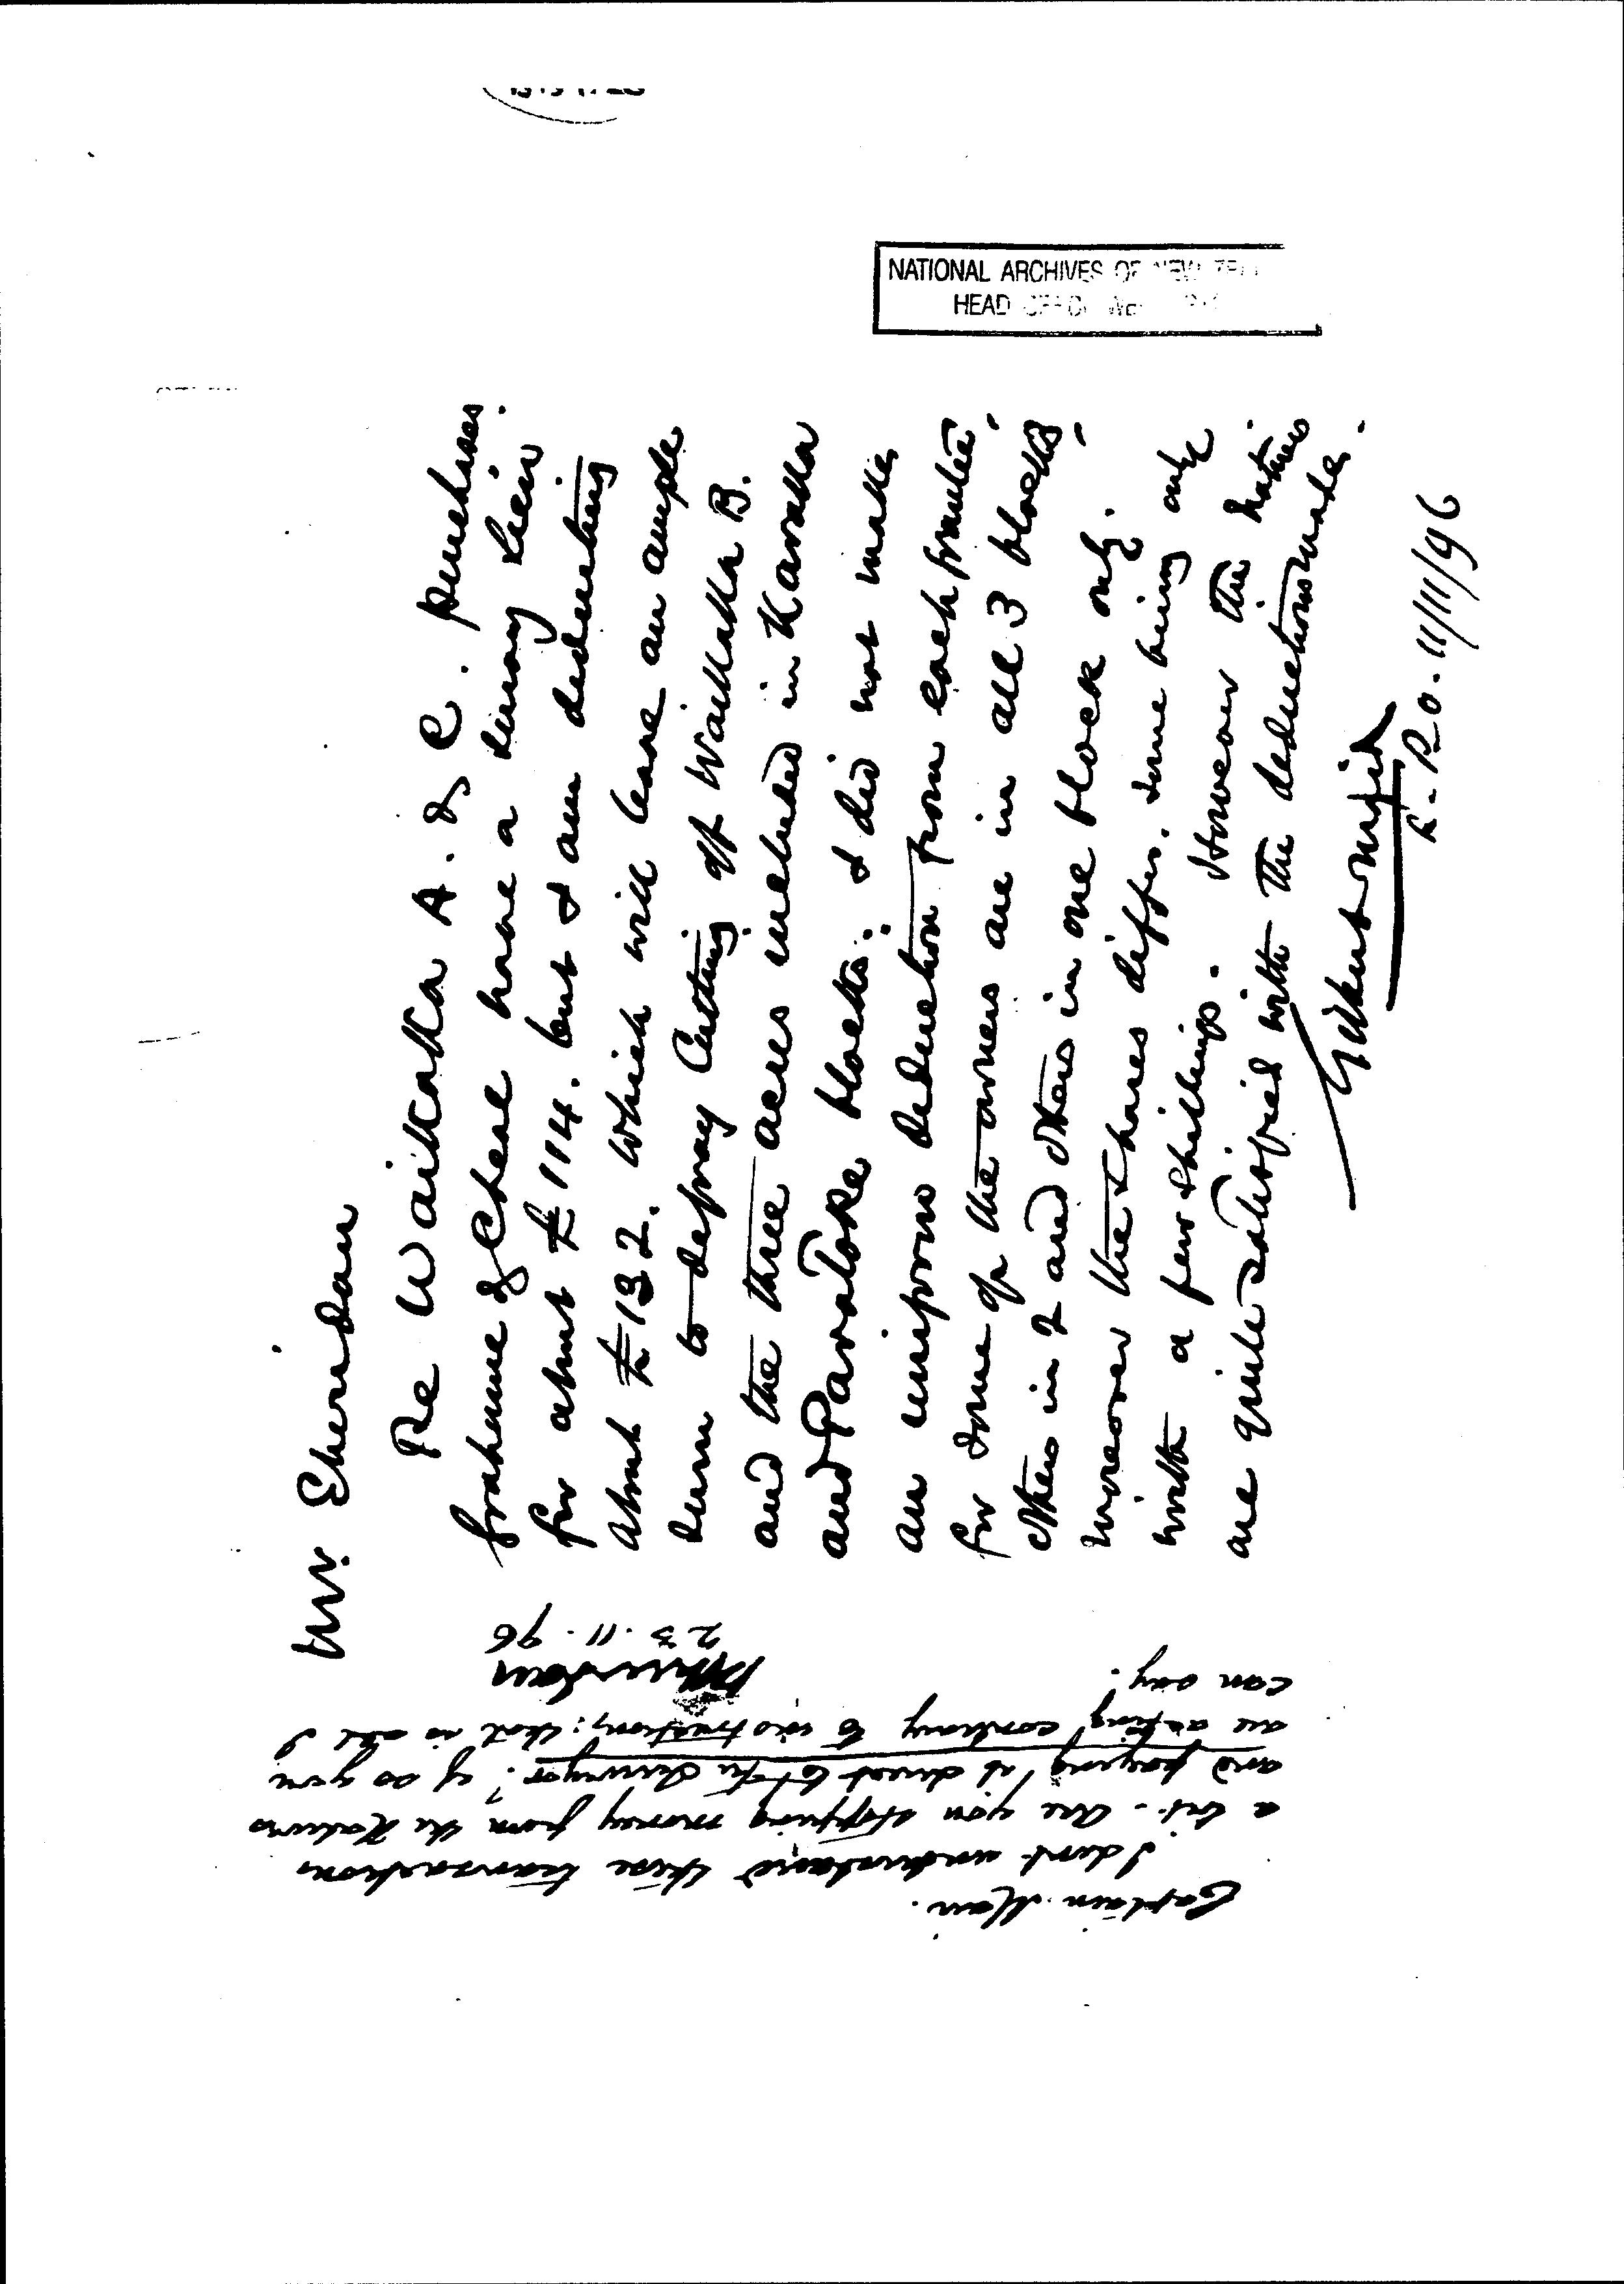 NATIONAL ARCHIVES OF NEW
HEAD
Mr. Sheridan
Re Waikaka A. & C. purchases.
& Cheal have a survey lien
for about £114. but I am deducting
about £132. which will leave an ample
sum to defray cutting off Waikaka B.
and the three acres included in Karaka
and Paratoke blocks. I did not make
an uniform deduction from each
for some of the owners are in all 3 blocks,
others in 2 and others in one block only.
moreover the shares differ, some being only
worth a few shillings. However the natives
are quite satisfied with the deductions made.
Gilbert Mair
L.P.O. 11/11/96
Captain Mair.
I dont understand these transactions
a bit. Are you stopping money from the Natives
and paying it direct to the Surveyor? if so you
are acting contrary to instructions: that is all I
can say.
23.11.96